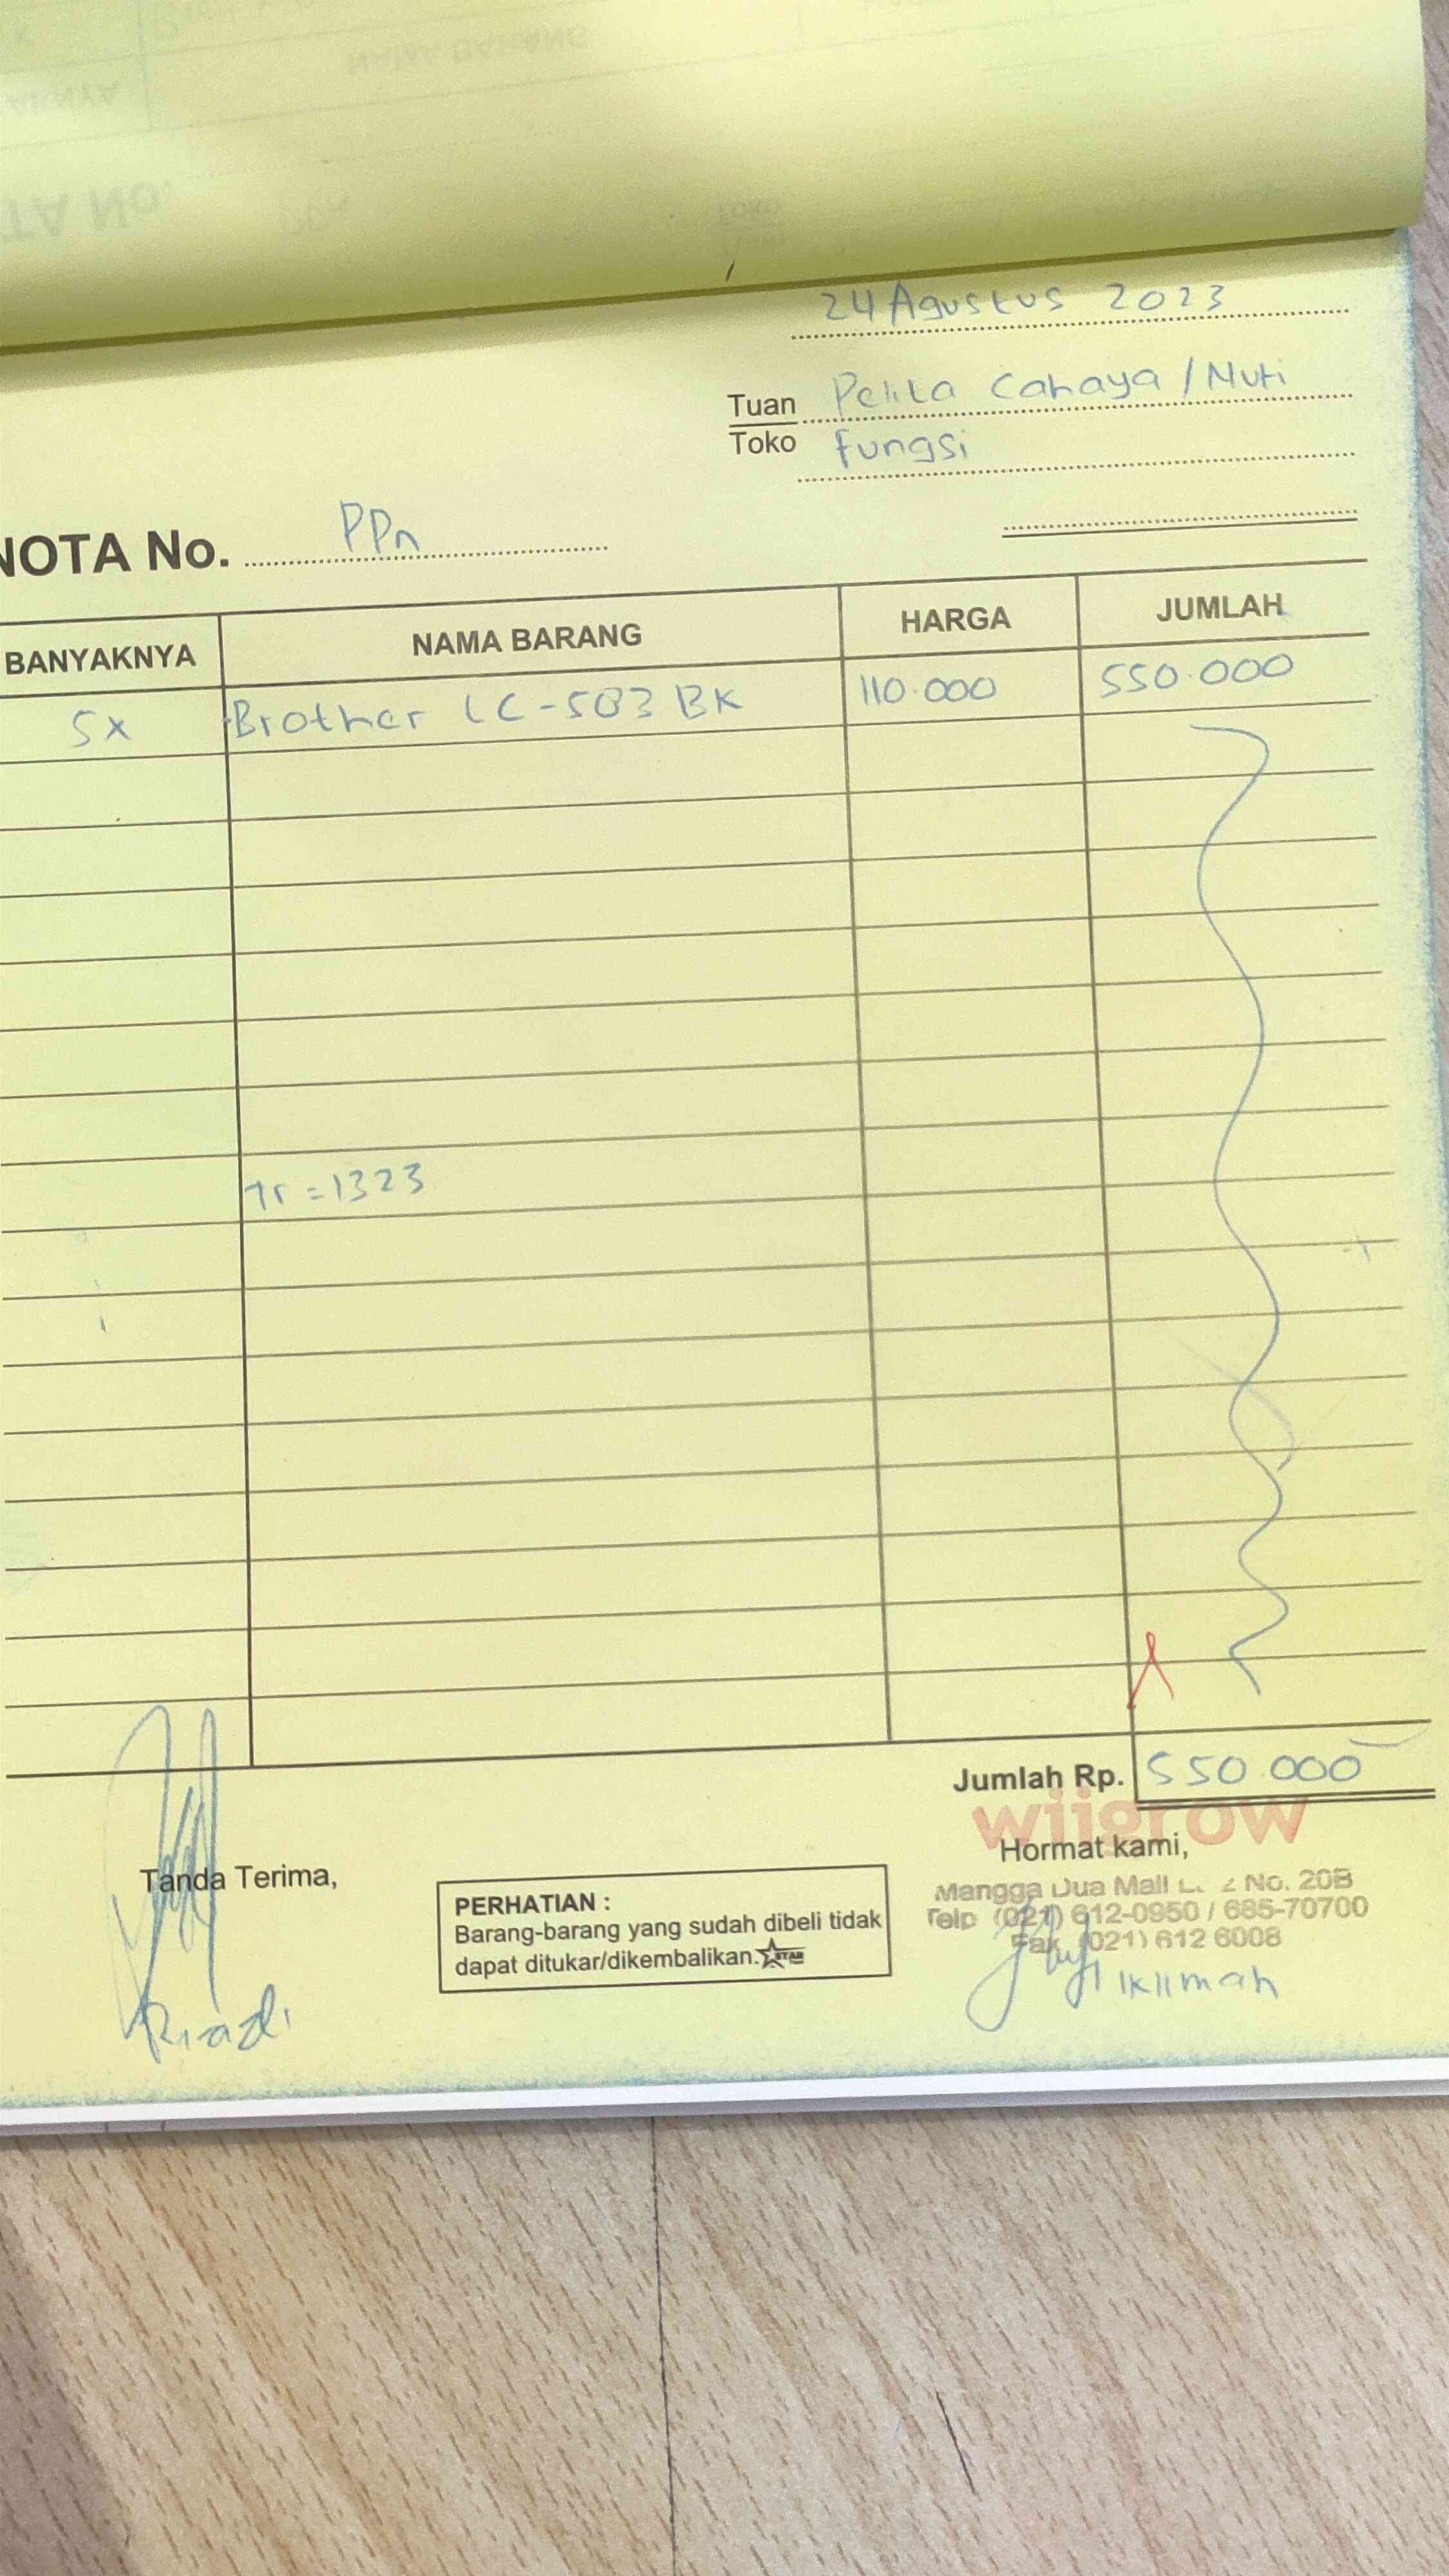 24 Agustus 2023
Tuan Pelita Cahaya / Muti
Toko Fungsi
NOTA No. PPn
BANYAKNYA NAMA BARANG HARGA JUMLAH
5x Brother LC-583 BK 110.000 550.000
Tr = 1323
Jumlah Rp. 550.000
wiigrow
Tanda Terima,
Hormat kami,
PERHATIAN :
Barang-barang yang sudah dibeli tidak
dapat ditukar/dikembalikan. STAR
Mangga Dua Mall No. 20B
Telp (021) 612-0950 / 685-70700
Fax (021) 612 6008
Riadi
Iklimah